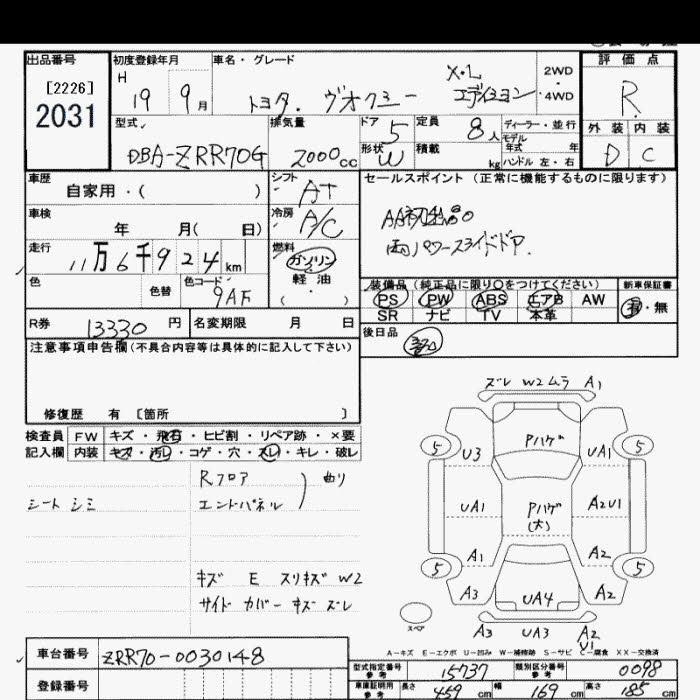 出品番号 初度登録年月 車名・グレード 評価点
[2226] H X・L 2WD
2031 19 9月 トヨタ. ヴォクシー エディション ・4WD R
型式 排気量 ドア 5 定員 8人 ディーラー・並行 外装 内装
DBA-ZRR70G 2000cc 形状 W 積載 kg モデル年式 年 ハンドル 左・右 D C
車歴 シフト セールスポイント (正常に機能するものに限ります)
自家用・( ) AT
車検 冷房
年 月( 日) A/C
走行 燃料 両パワースライドドア.
11万6千924km ガソリン
色 色替 色コード 軽油 装備品 (純正品に限り○をつけてください) 新車保証書
9AF ・( ) PS PW ABS エアB AW 有・無
R券 13330円 名変期限 月 日 SR ナビ TV 本革
注意事項申告欄(不具合内容等は具体的に記入して下さい) 後日品
修復歴 有 〔箇所 〕
検査員 FW キズ・飛石・ヒビ割・リペア跡・×要
記入欄 内装 キズ・汚レ・コゲ・穴・スレ・キレ・破レ
Rフロア
シート シミ エンドパネル 曲り
キズ E スリキズ W2
サイド カバー キズ ズレ
ズレ W2 ムラ A1
5 Pハゲ 5
U3 UA1
UA1 Pハゲ A2U1
(大)
A1 A2
5 5
A3 UA4 A2
スペア A3 UA3 A2
U1
A-キズ E-エクボ U-凹み W-補修跡 S-サビ C-腐食 XX-交換済
車台番号 ZRR70-0030148 型式指定番号 参考 15737 類別区分番号 参考 0098
登録番号 車庫証明用 参考 長さ 459cm 幅 169cm 高さ 185cm